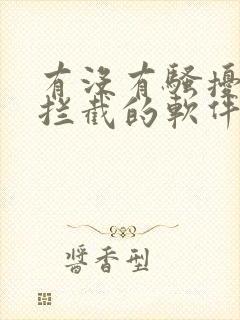 有没有騷擾
拦截的軟件
醬香型